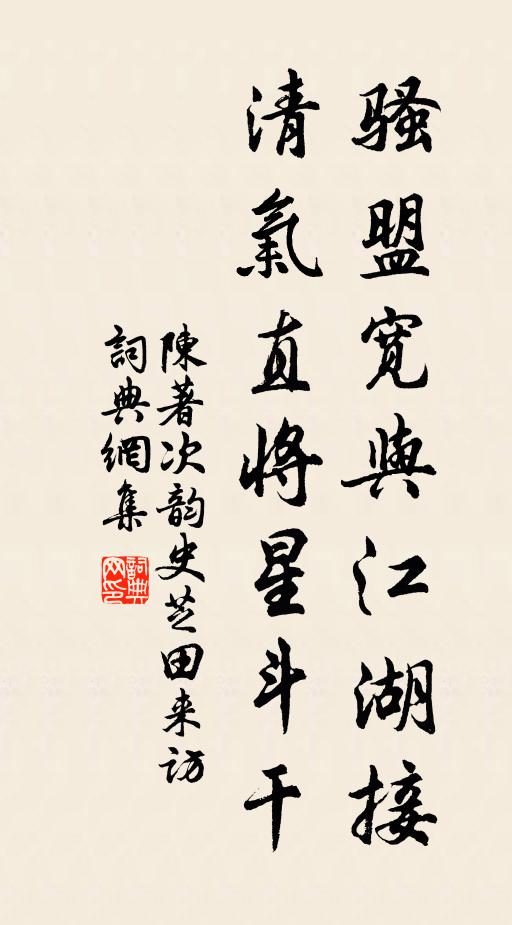 骚盟宽與江湖接
清氣直將星斗干
陳著次韵史芝田来访
詞典網集
詞典网印